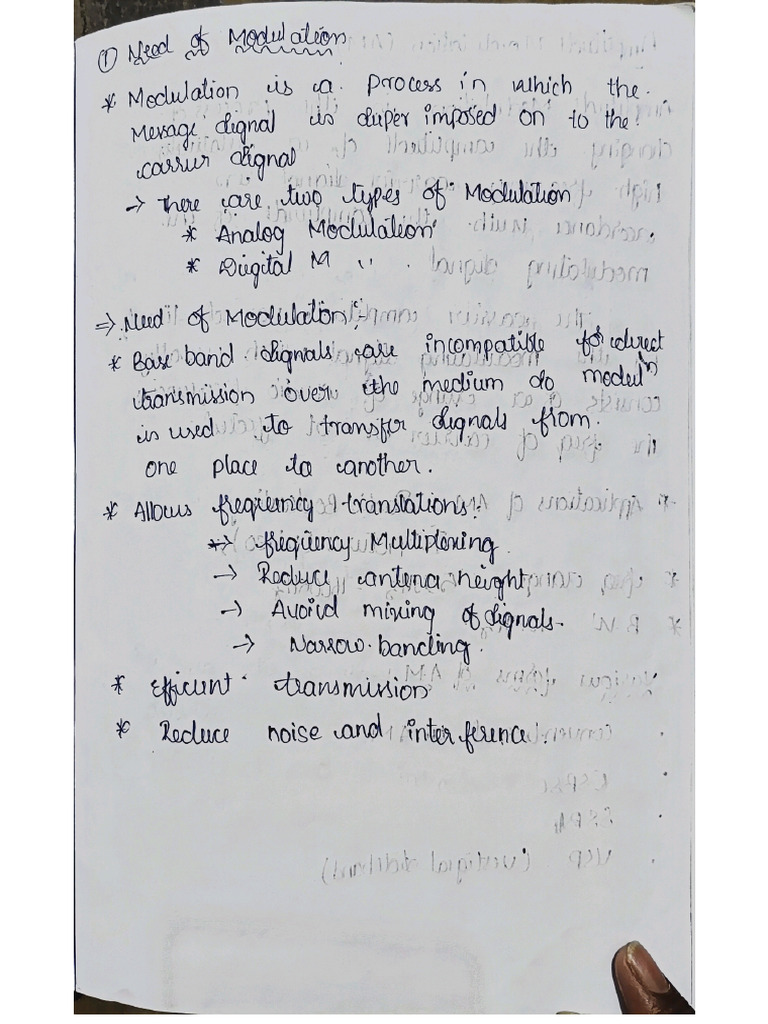 ① Need of Modulation
* Modulation is a process in which the
Message signal is super imposed on to the
carrier signal
→ There are two types of Modulation
* Analog Modulation
* Digital M ,,
⇒ Need of Modulation:-
* Base band signals are incompatible for direct
transmission over the medium so moduln
is used to transfer signals from
one place to another.
* Allows frequency translations:
→ frequency Multiplexing
→ Reduce antena height
→ Avoid mixing of signals-
→ Narrow banding.
* Efficient transmission
* Reduce noise and interference.